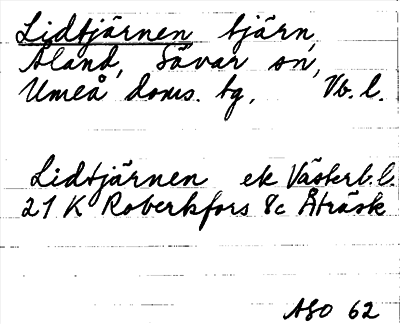 Lidtjärnen tjärn,
Åland, Sävar sn,
Umeå doms. tg. Vb. l.
Lidtjärnen ek Västerb. l.
21 K Robertsfors 8c Åträsk
ASO 62